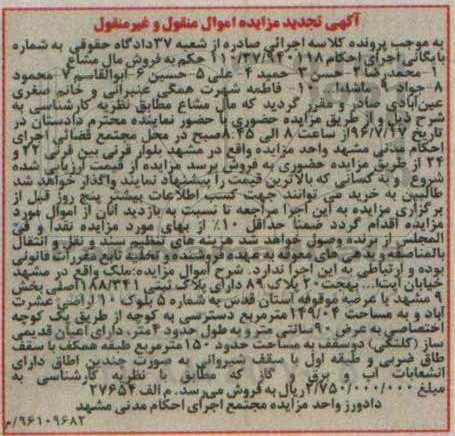 آگهی تجدید مزایده اموال منقول و غیرمنقول
به موجب پرونده کلاسه اجرائی صادره از شعبه ۳۷دادگاه حقوقی به شماره
بایگانی اجرای احکام ۱۱۰/۳۷/۹۴۰۱۱۸ حکم به فروش مال مشاع
۱-محمدرضا ۲-حسن ۳-حمید ۴-علی ۵-حسین ۶-ابوالقاسم ۷-محمود
۸-جواد ۹-ماشاءا... ۱۰-فاطمه شهرت همگی عنبرانی و خانم صغری
عین‌آبادی صادر و مقرر گردید که مال مشاع مطابق نظریه کارشناسی به
شرح ذیل و از طریق مزایده حضوری با حضور نماینده محترم دادستان در
تاریخ ۹۶/۷/۱۷ از ساعت ۸ الی ۸.۴۵صبح در محل مجتمع قضائی اجرای
احکام مدنی مشهد واحد مزایده واقع در مشهد بلوار قرنی بین قرنی ۲۲ و
۲۴ از طریق مزایده حضوری به فروش برسد مزایده از قیمت ارزیابی شده
شروع و به کسانی که بالاترین قیمت را پیشنهاد نمایند واگذار خواهد شد
طالبین به خرید می توانند جهت کسب اطلاعات بیشتر پنج روز قبل از
برگزاری مزایده به این اجرا مراجعه تا نسبت به بازدید آنان از اموال مورد
مزایده اقدام گردد ضمنا حداقل ۱۰٪ از بهای مورد مزایده نقد و فی
المجلس از برنده وصول خواهد شد هزینه های تنظیم سند و نقل و انتقال
بالمناصفه و بدهی های معوقه به عهده فروشنده و تخلیه تابع مقررات قانونی
بوده و ارتباطی به این اجرا ندارد. شرح اموال مزایده:ملک واقع در مشهد
خیابان آیت‌ا... بهجت ۲۰ پلاک ۸۹ دارای پلاک ثبتی ۱۸۸/۳۴۱اصلی بخش
۹ مشهد با عرصه موقوفه آستان قدس به شماره ۵ بلوک ۱۰ اراضی عشرت
آباد و به مساحت ۱۴۹/۰۴مترمربع دسترسی به کوچه از طریق یک کوچه
اختصاصی به عرض ۹۰سانتی متر و به طول حدود ۴متر، دارای اعیان قدیمی
ساز (کلنگی) دوسقف به مساحت حدود ۱۵۰مترمربع طبقه همکف با سقف
طاق ضربی و طبقه اول با سقف شیروانی به صورت چندین اطاق دارای
انشعابات آب و برق و گاز که مطابق با نظریه کارشناسی به
مبلغ ۲/۷۵۰/۰۰۰/۰۰۰ریال به فروش می‌رسد. م الف ۲۷۶۵۴
دادورز واحد مزایده مجتمع اجرای احکام مدنی مشهد
۹۶۱۰۹۶۸۲/م